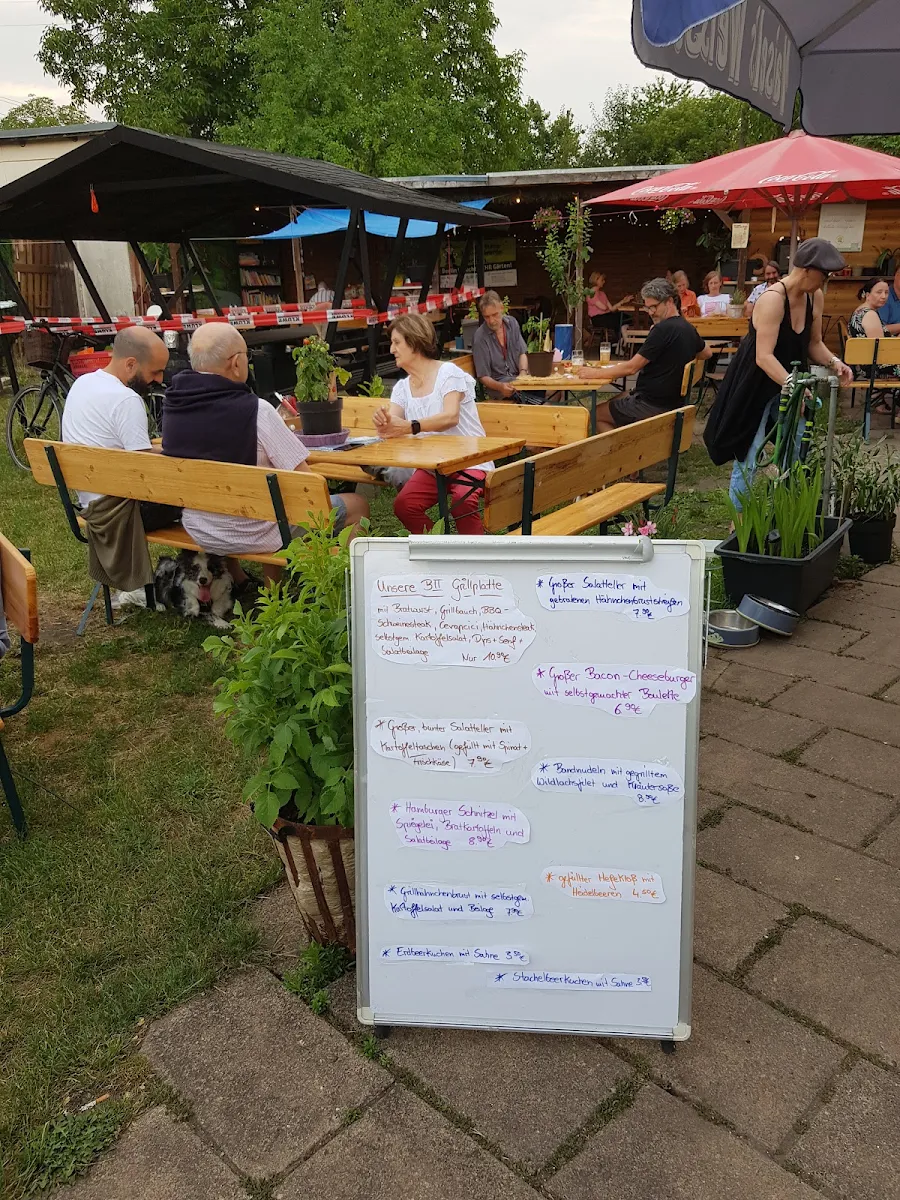 Coca-Cola
Coca-Cola
Unsere BII Grillplatte
mit Bratwurst, Grillbauch, BBQ-
Schweinesteak, Cevapcici, Hähnchensteak
selbstgem. Kartoffelsalat, Dips + Senf +
Salatbeilage Nur 10,90€
* Großer, bunter Salatteller mit
Kartoffeltaschen (gefüllt mit Spinat +
Frischkäse) 7,90€
* Hamburger Schnitzel mit
Spiegelei, Bratkartoffeln und
Salatbeilage 8,90€
* Grillhähnchenbrust mit selbstgem.
Kartoffelsalat und Beilage 7,90€
* Erdbeerkuchen mit Sahne 3,50€
* Großer Salatteller mit
gebratenen Hähnchenbruststreifen
7,90€
* Großer Bacon-Cheeseburger
mit selbstgemachter Boulette
6,90€
* Bandnudeln mit gegrilltem
Wildlachsfilet und Kräutersoße
8,90€
* gefüllter Hefekloß mit
Heidelbeeren 4,50€
* Stachelbeerkuchen mit Sahne